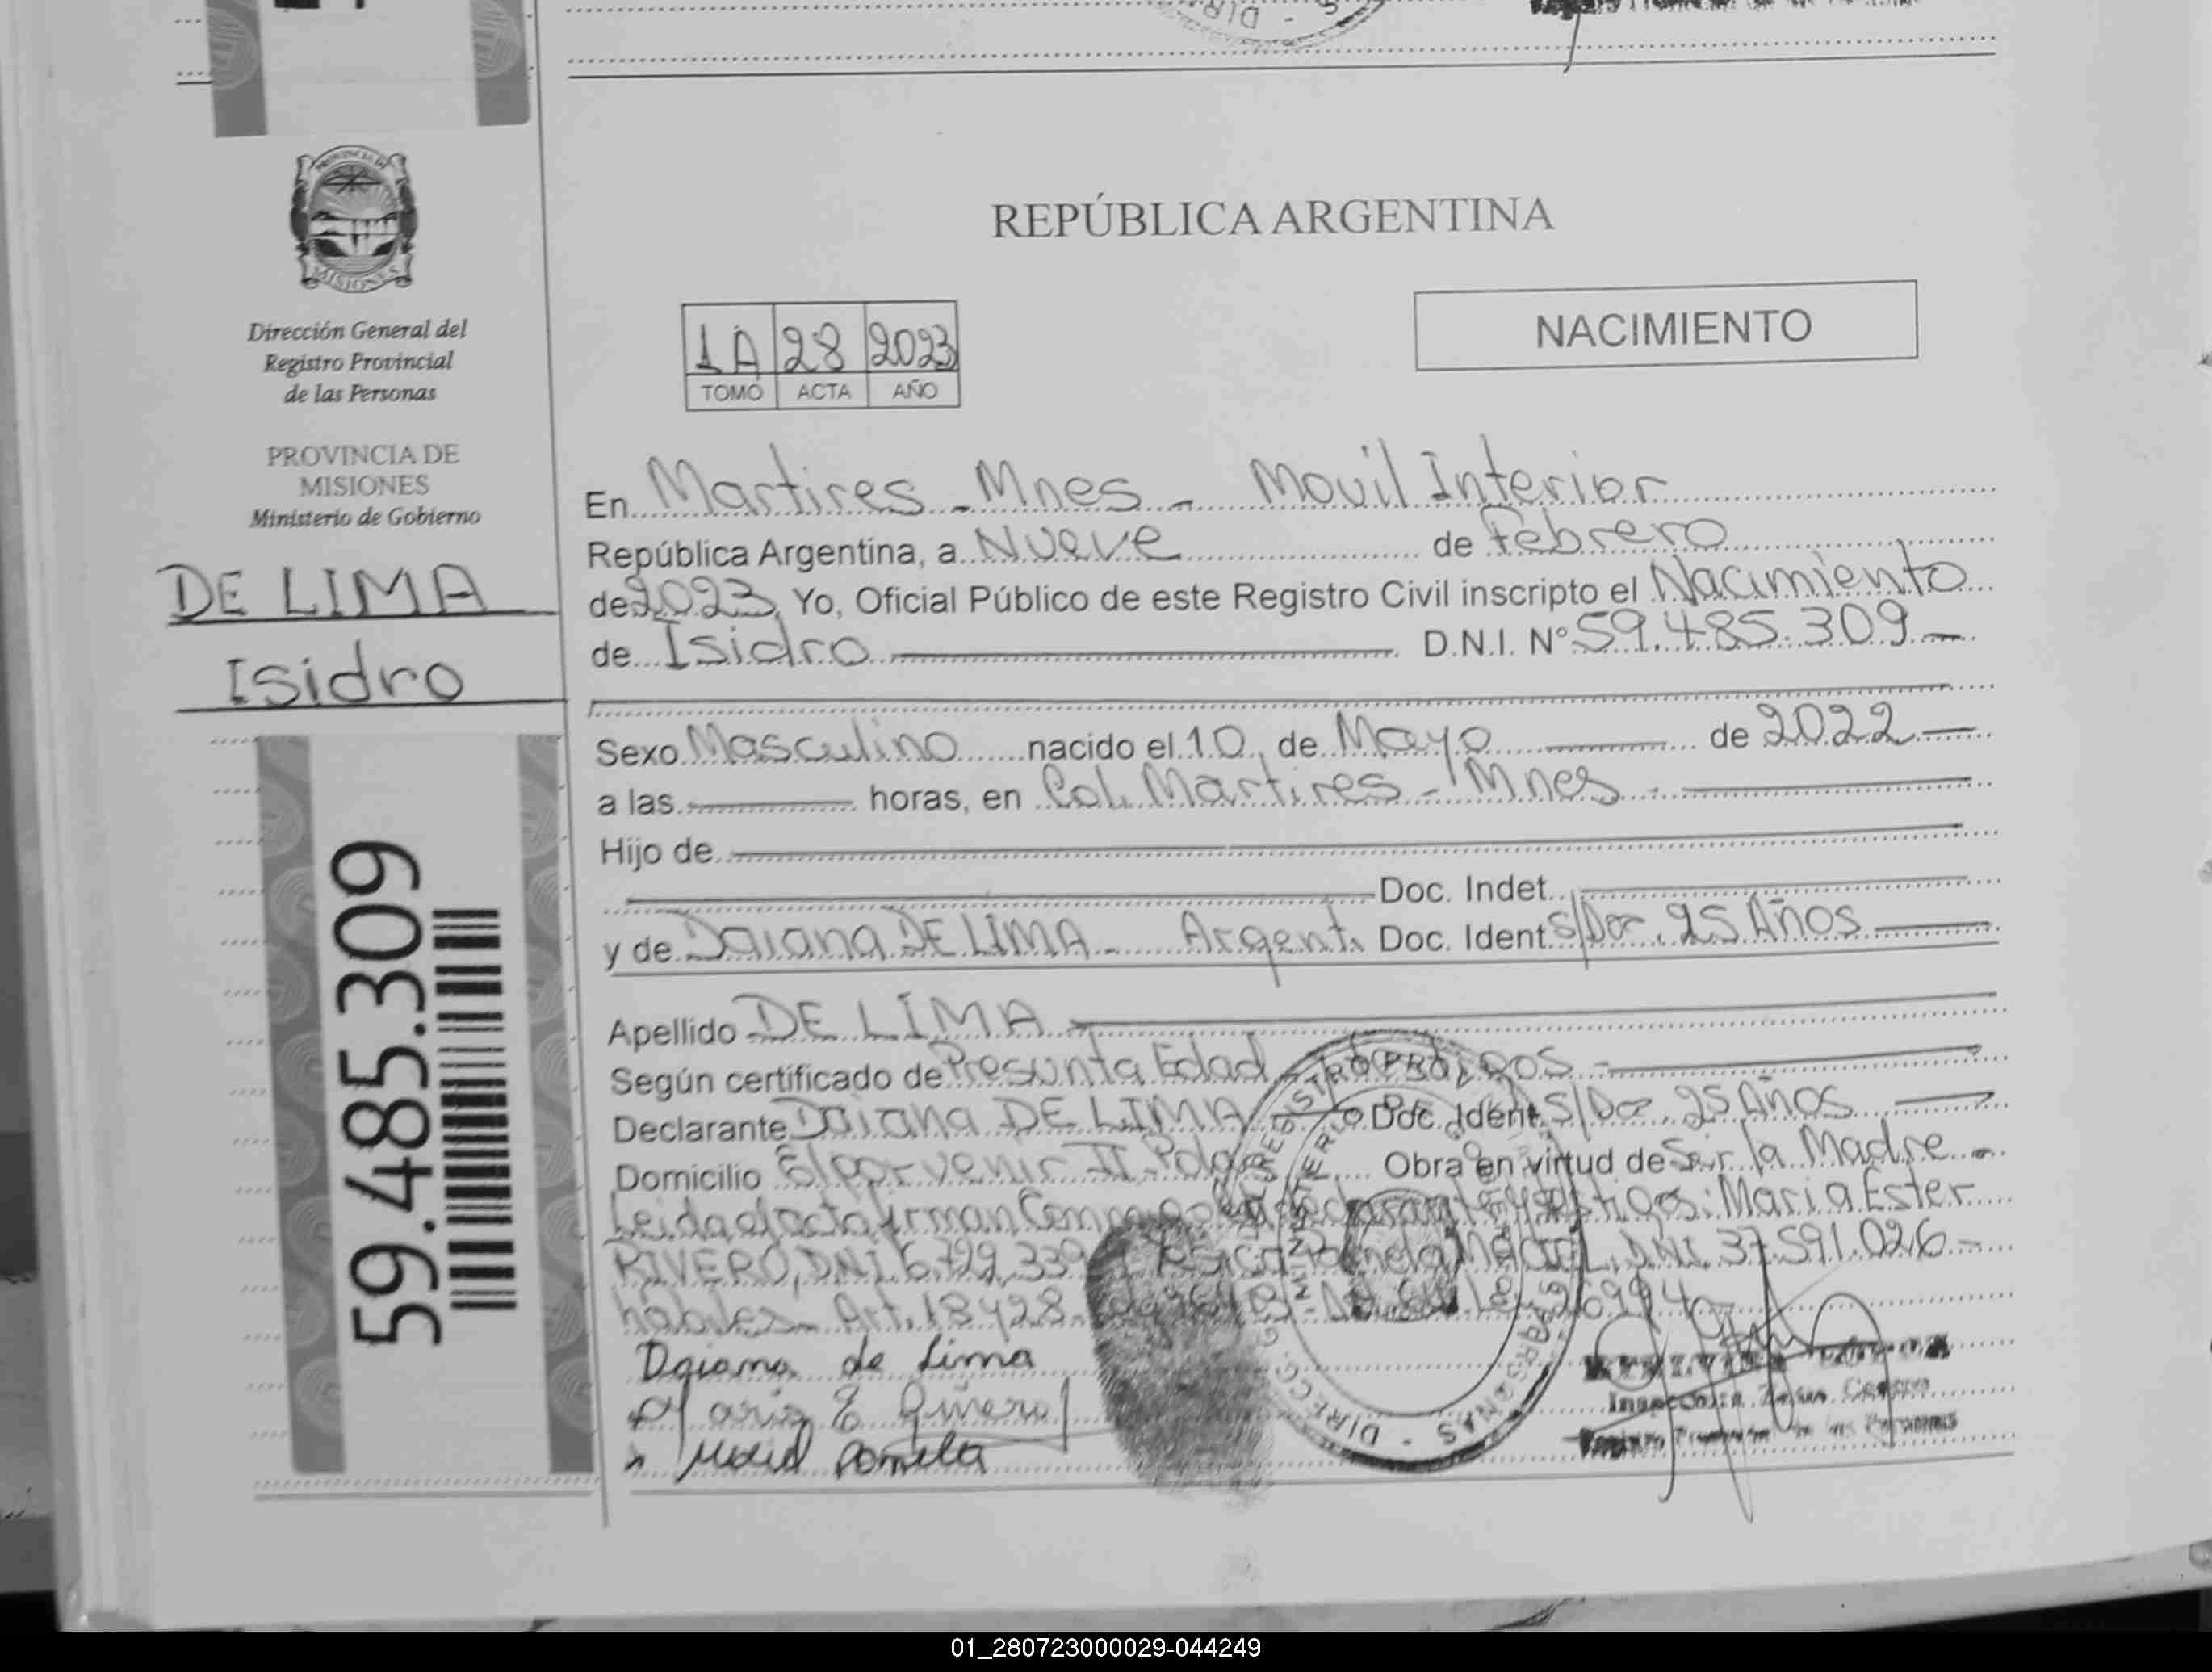 REPÚBLICA ARGENTINA
PROVINCIA DE
MISIONES
Dirección General del
Registro Provincial
de las Personas
PROVINCIA DE
MISIONES
Ministerio de Gobierno
DE LIMA
Isidro
59.485.309
NACIMIENTO
1A 28 2023
TOMO ACTA AÑO
En Martires - Mnes - Movil Interior
República Argentina, a Nueve de Febrero
de 2023, Yo, Oficial Público de este Registro Civil inscripto el Nacimiento
de Isidro D.N.I. N° 59.485.309
Sexo Masculino nacido el 10 de Mayo de 2022
a las horas, en Col. Martires - Mnes
Hijo de
Doc. Indet.
y de Daiana DE LIMA - Argent. Doc. Ident. S/Doc. 25 Años
Apellido DE LIMA
Según certificado de Presunta Edad
Declarante Daiana DE LIMA Doc. Ident. S/Doc. 25 Años
Domicilio El porvenir II Obra en virtud de Ser la Madre
Leida el acta firman testigos: Maria Ester
RIVERO, DNI 6.729.339 DNI. 37.591.026
habiles Art. 18 y 28
Daiana de Lima
Maria E
DIRECC
MINISTERIO
01_280723000029-044249